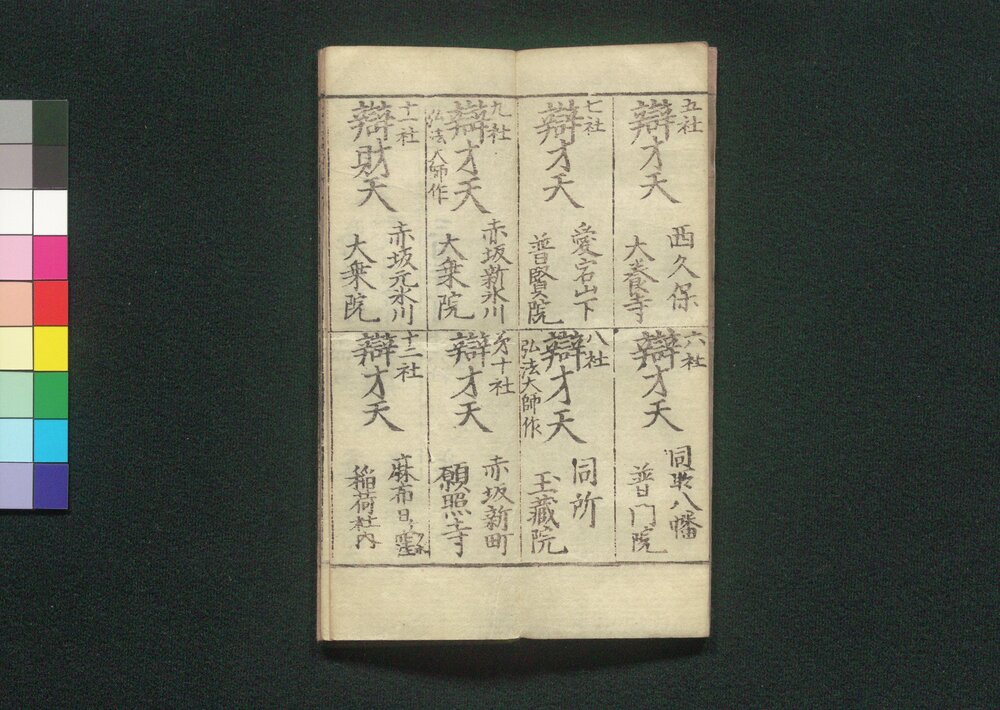 五社
辯才天
西久保
大養寺
六社
辯才天
同所八幡
普門院
七社
辯才天
愛宕山下
普賢院
八社
辯才天
弘法大師作
同所
玉藏院
九社
辯才天
弘法大師作
赤坂新氷川
大乗院
才十社
辯才天
赤坂新町
願照寺
十一社
辯財天
赤坂元氷川
大乗院
十二社
辯才天
麻布日ヶ窪
稲荷社内